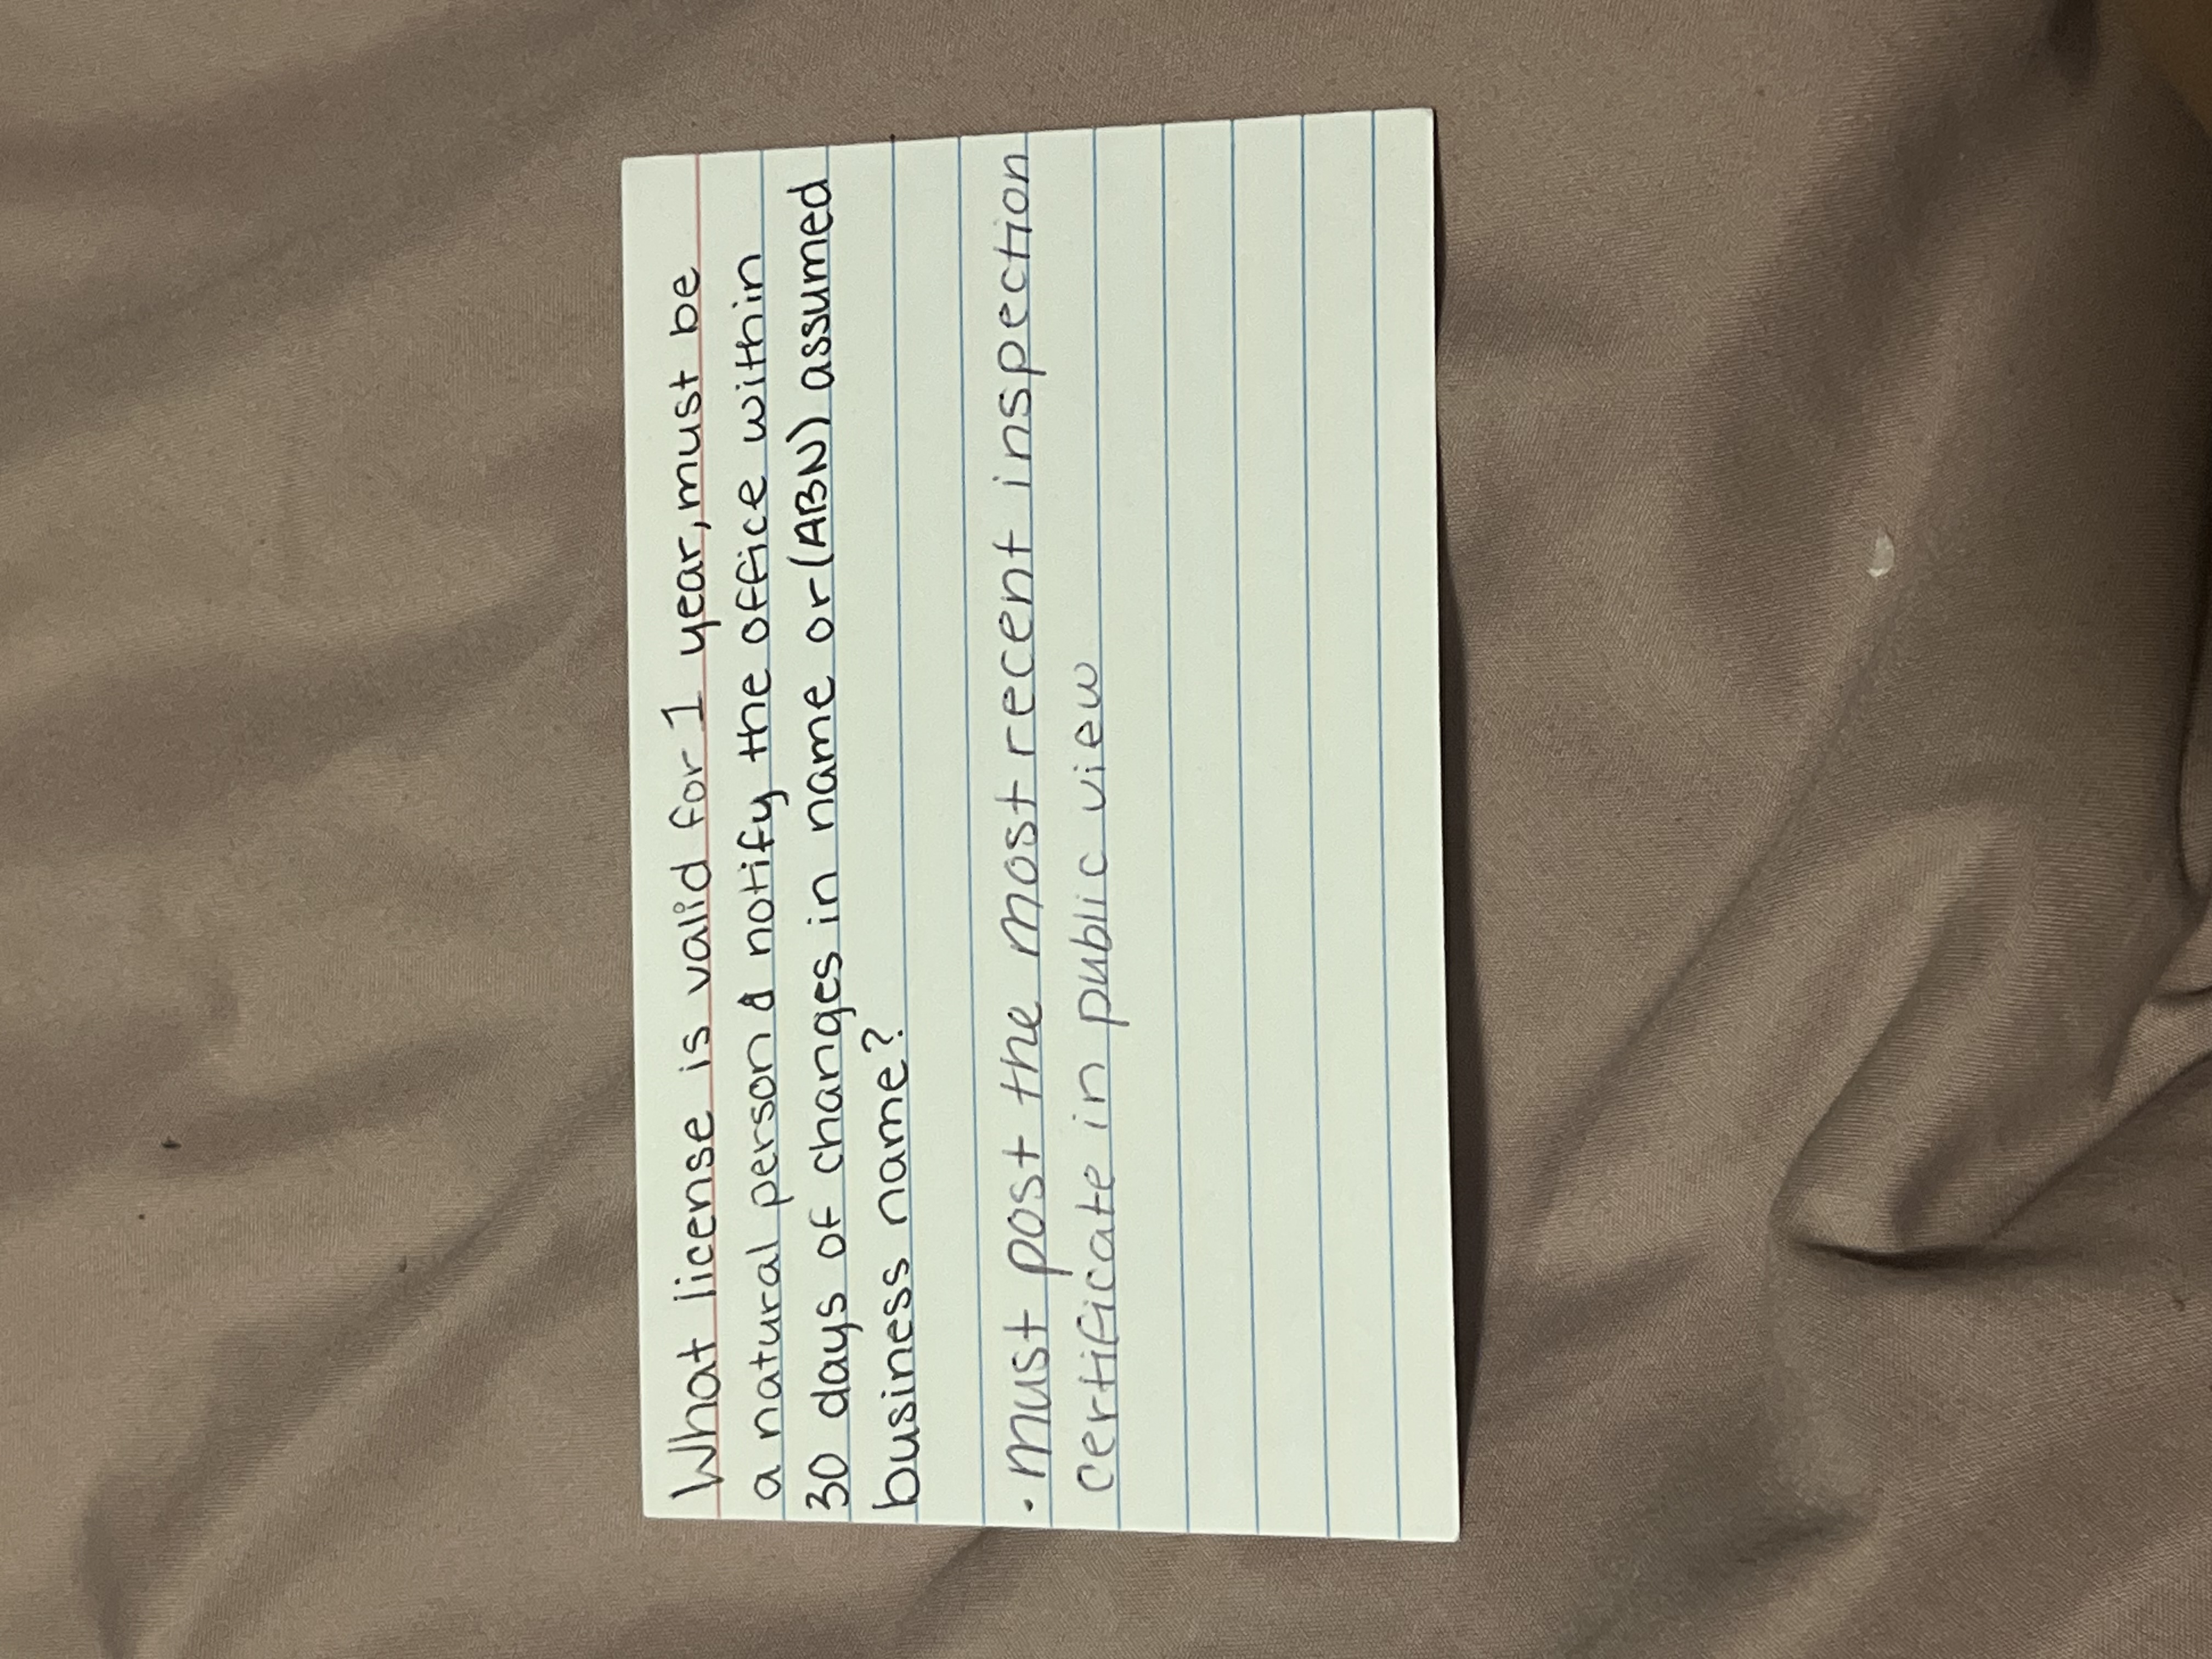 What license is valid for 1 year, must be
a natural person & notify the office within
30 days of changes in name or (ABN) assumed
business name?
• must post the most recent inspection
certificate in public view